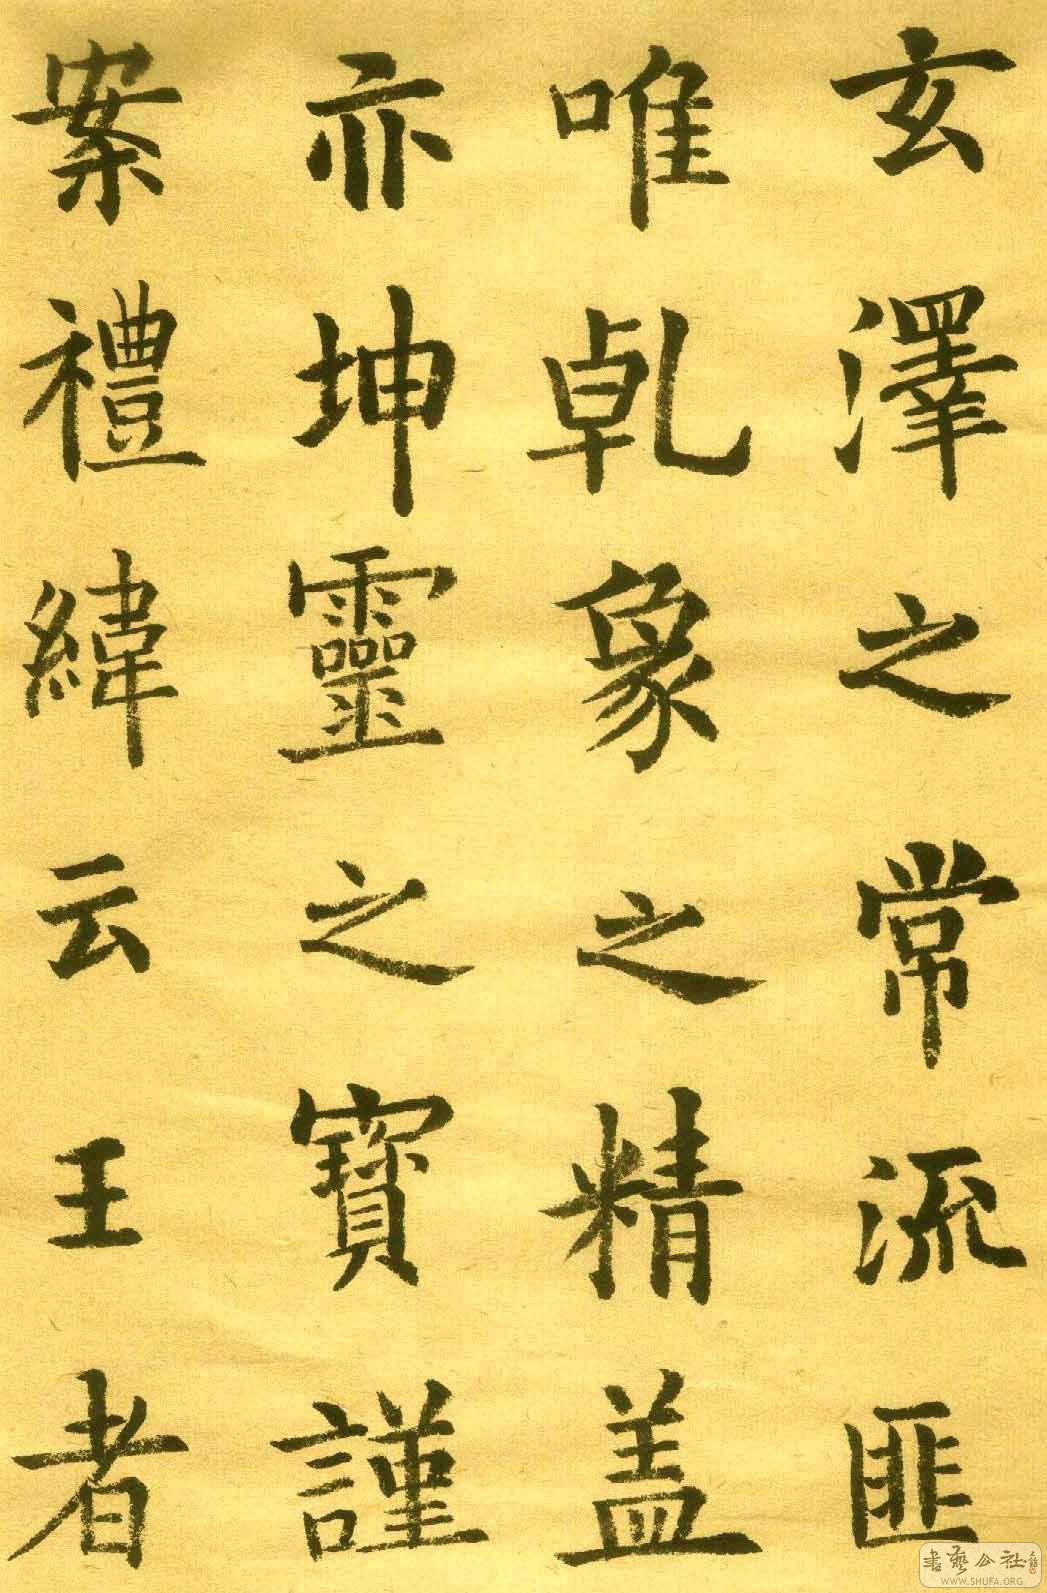 玄澤之常流匪
唯乹象之精盖
亦坤靈之寶謹
案禮緯云王者
書藝公社
WWW.SHUFA.ORG